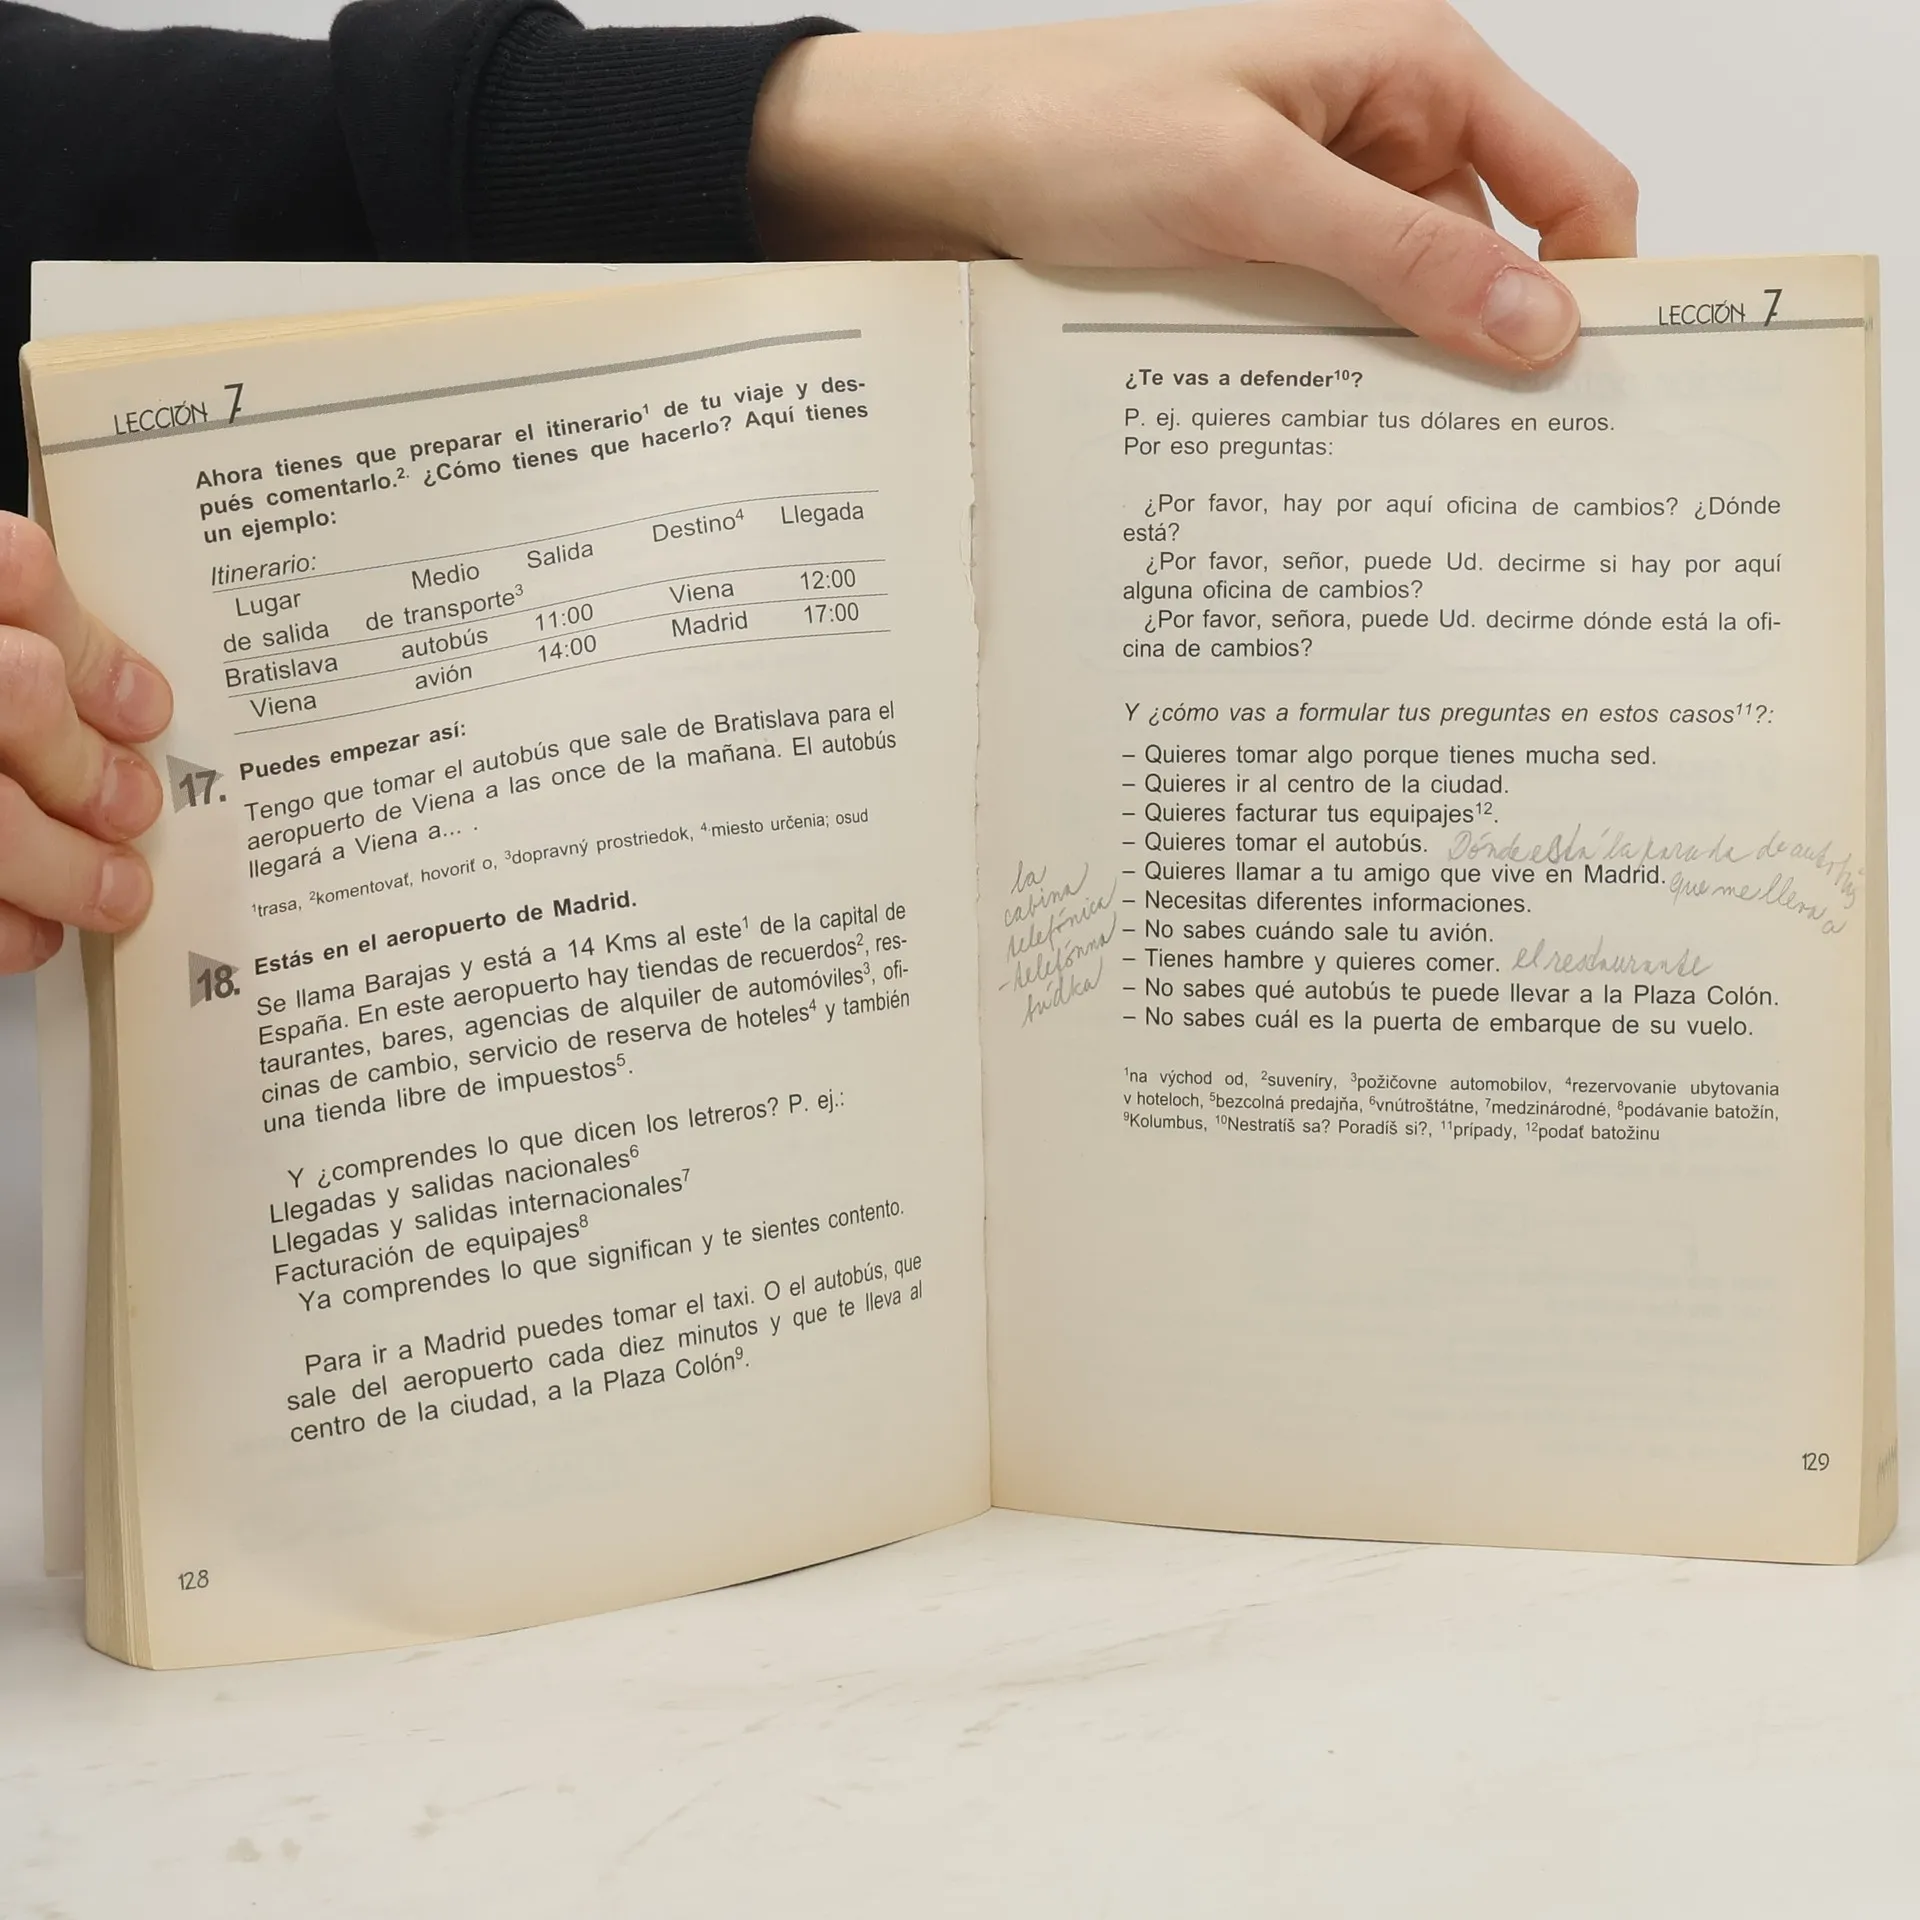 LECCIÓN 7
Ahora tienes que preparar el itinerario¹ de tu viaje y des-
pués comentarlo.². ¿Cómo tienes que hacerlo? Aquí tienes
un ejemplo:
Itinerario:
Lugar de salida Medio de transporte³ Salida Destino⁴ Llegada
Bratislava autobús 11:00 Viena 12:00
Viena avión 14:00 Madrid 17:00
17. Puedes empezar así:
Tengo que tomar el autobús que sale de Bratislava para el
aeropuerto de Viena a las once de la mañana. El autobús
llegará a Viena a... .
¹trasa, ²komentovať, hovoriť o, ³dopravný prostriedok, ⁴·miesto určenia; osud
18. Estás en el aeropuerto de Madrid.
Se llama Barajas y está a 14 Kms al este¹ de la capital de
España. En este aeropuerto hay tiendas de recuerdos², res-
taurantes, bares, agencias de alquiler de automóviles³, ofi-
cinas de cambio, servicio de reserva de hoteles⁴ y también
una tienda libre de impuestos⁵.
Y ¿comprendes lo que dicen los letreros? P. ej.:
Llegadas y salidas nacionales⁶
Llegadas y salidas internacionales⁷
Facturación de equipajes⁸
Ya comprendes lo que significan y te sientes contento.
Para ir a Madrid puedes tomar el taxi. O el autobús, que
sale del aeropuerto cada diez minutos y que te lleva al
centro de la ciudad, a la Plaza Colón⁹.
128
LECCIÓN 7
¿Te vas a defender¹⁰?
P. ej. quieres cambiar tus dólares en euros.
Por eso preguntas:
¿Por favor, hay por aquí oficina de cambios? ¿Dónde
está?
¿Por favor, señor, puede Ud. decirme si hay por aquí
alguna oficina de cambios?
¿Por favor, señora, puede Ud. decirme dónde está la ofi-
cina de cambios?
Y ¿cómo vas a formular tus preguntas en estos casos¹¹?:
– Quieres tomar algo porque tienes mucha sed.
– Quieres ir al centro de la ciudad.
– Quieres facturar tus equipajes¹².
– Quieres tomar el autobús. Dónde está la parada de autobús
– Quieres llamar a tu amigo que vive en Madrid. que me lleva a
– Necesitas diferentes informaciones.
– No sabes cuándo sale tu avión.
– Tienes hambre y quieres comer. el restaurante
– No sabes qué autobús te puede llevar a la Plaza Colón.
– No sabes cuál es la puerta de embarque de su vuelo.
la
cabina
telefónica
-telefónna
búdka
¹na východ od, ²suveníry, ³požičovne automobilov, ⁴rezervovanie ubytovania
v hoteloch, ⁵bezcolná predajňa, ⁶vnútroštátne, ⁷medzinárodné, ⁸podávanie batožín,
⁹Kolumbus, ¹⁰Nestratíš sa? Poradíš si?, ¹¹prípady, ¹²podať batožinu
129